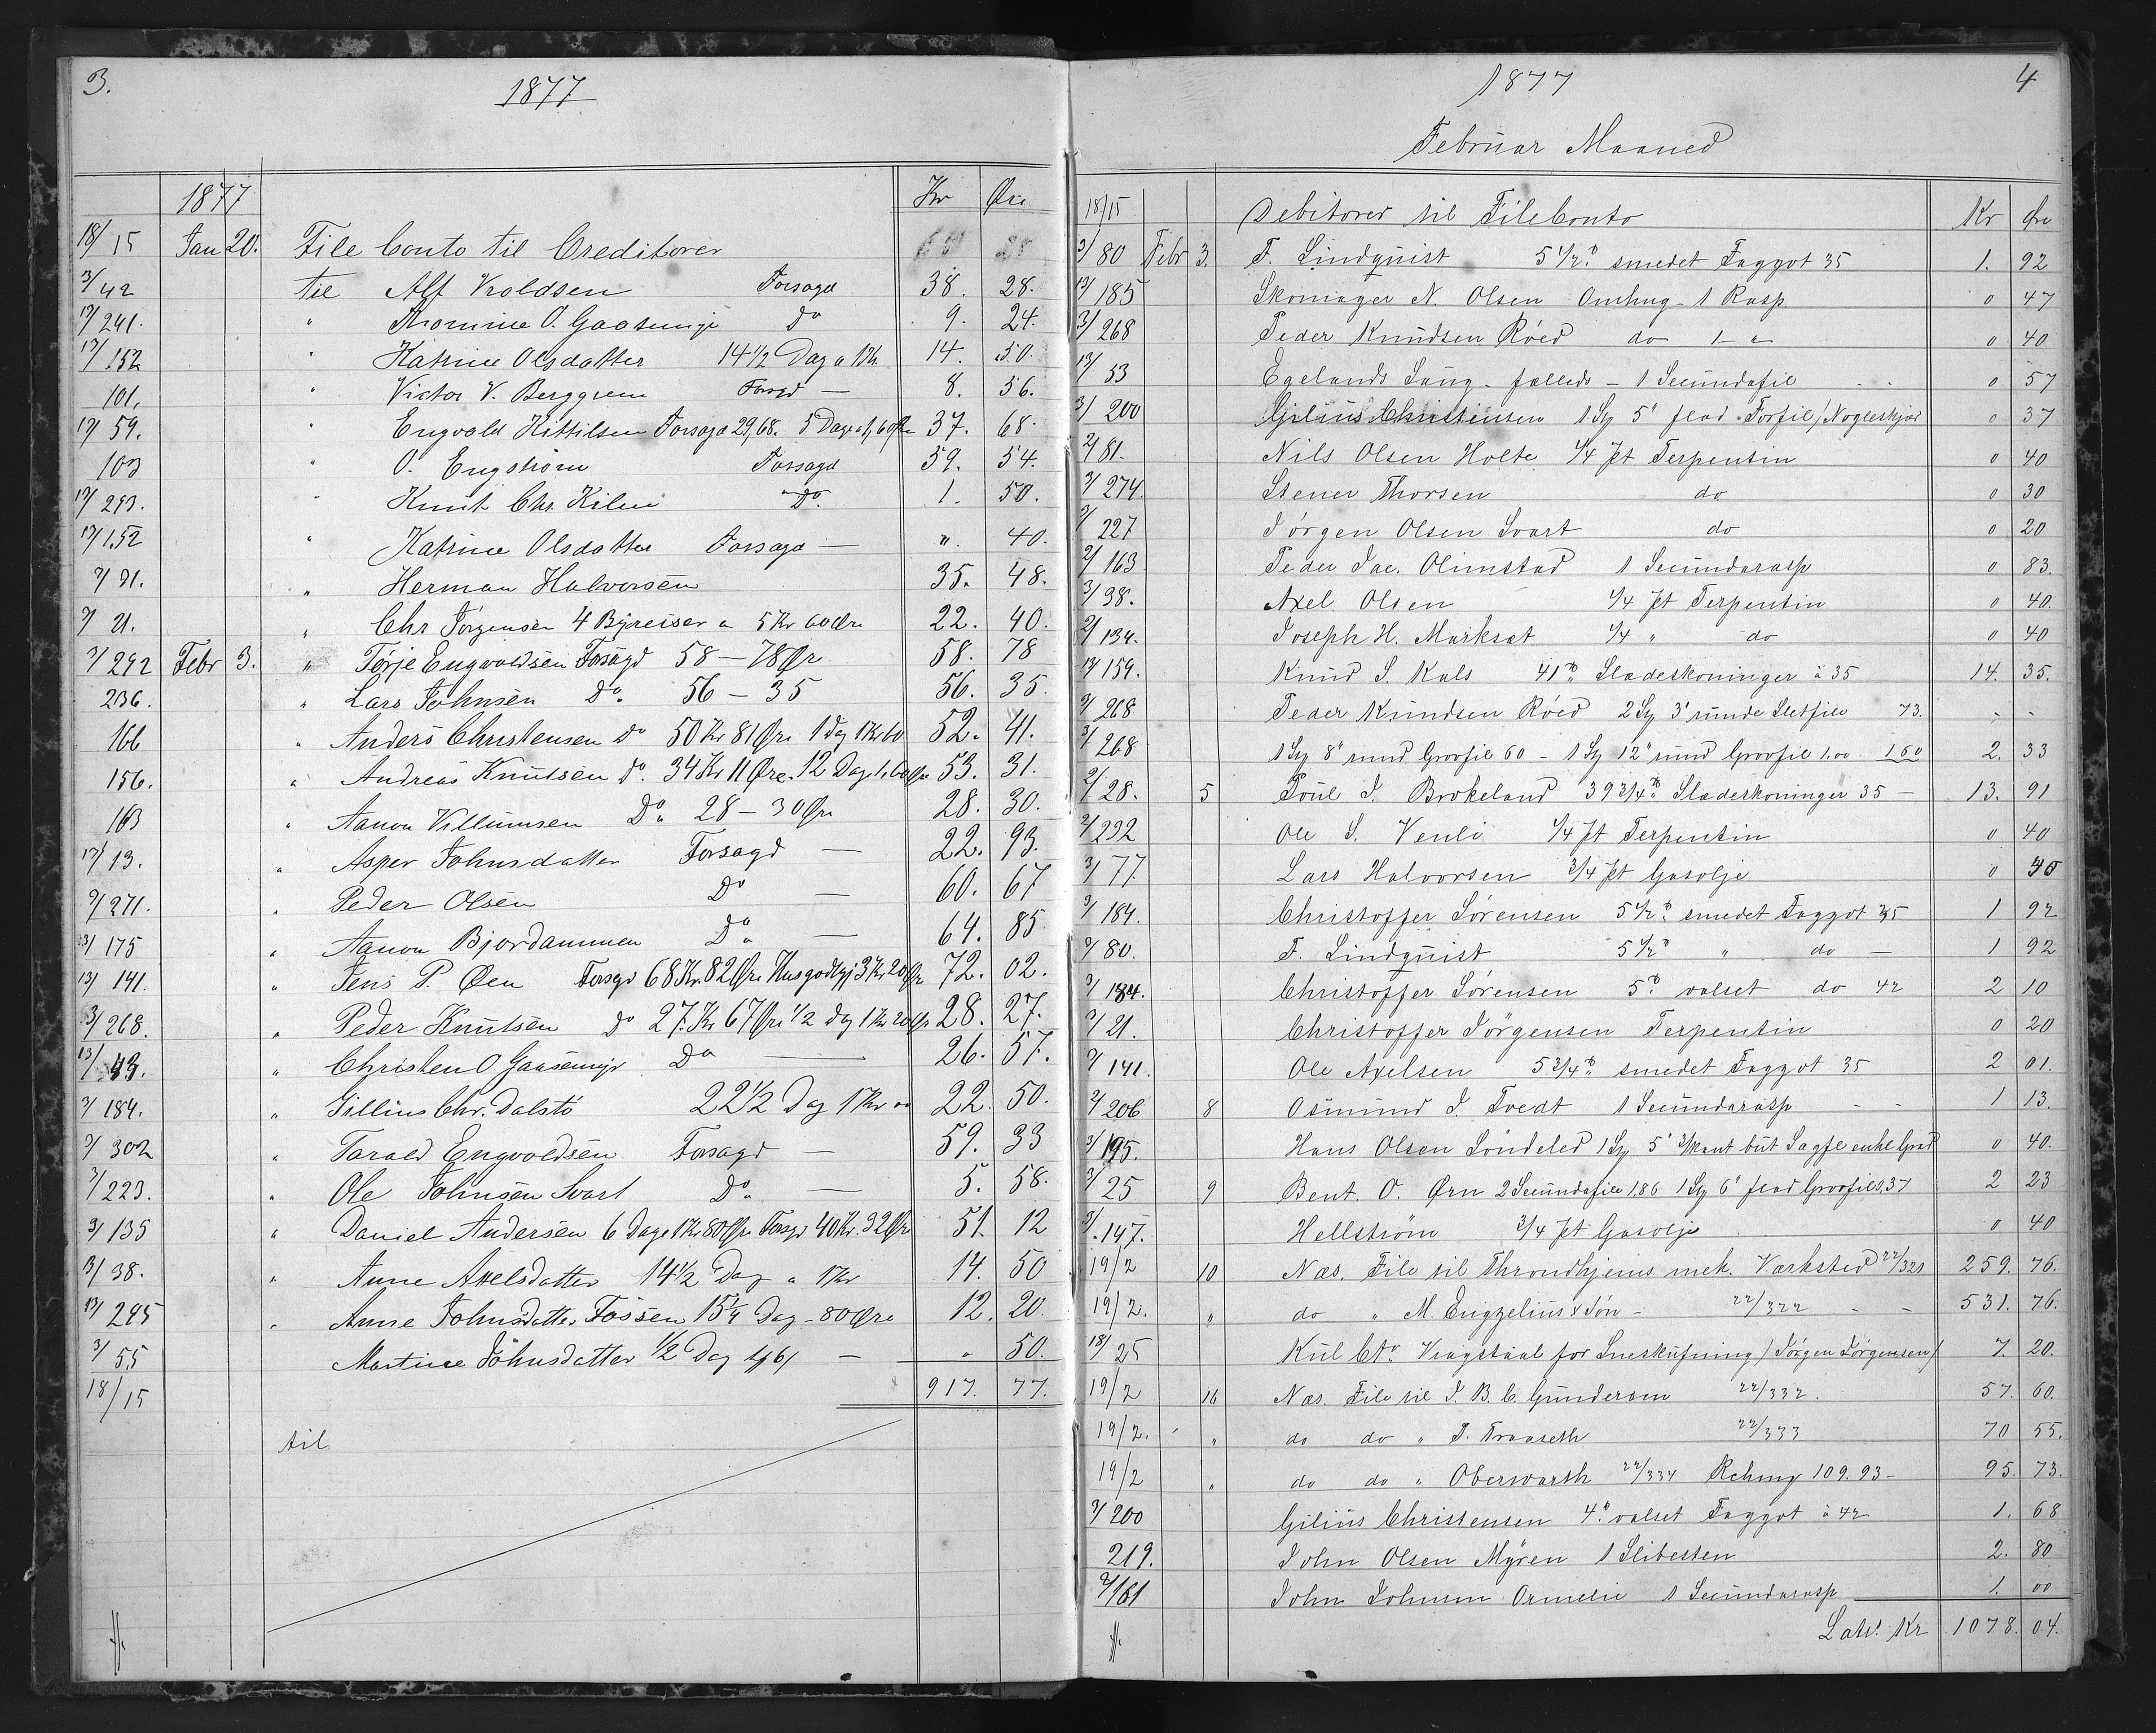 3.
1877
1877
Kr Øre
18/15 Jan 20. File Conto til Creditorer
3/42 til Alf Kroldsen Forsagd 38. 28.
13/241. " Thomine O. Gaasemyr Do 9. 24.
13/152 " Katrine Olsdatter 14 1/2 Dag a 1 Kr 14. 50.
101. " Victor V. Berggren Forsgd — 8. 56.
13/59. " Engvald Kittilsen Forsagd 29,68. 5 Dage a 1,60 Øre 37. 68.
103 " O. Engstrøm Forsagd 59. 54.
13/293. " Knut Chr. Kilen Do. 1. 50.
13/152 " Katrine Olsdatter Forsagd — ". 40.
3/91. " Herman Halvorsen 35. 48.
3/21. " Chr Jørgensen 4 Byreiser a 5 Kr 60 Øre 22. 40.
3/292 Febr 3. " Tørje Engvoldsen Forsagd 58 — 78 Øre 58. 78
236. " Lars Johnsen Do. 56 — 35 56. 35.
166 " Anders Christensen Do 50 Kr 81 Øre 1 dag 1 Kr 60 52. 41.
156. " Andreas Knutsen Do. 34 Kr 11 Øre. 12 Dage 1,60 Øre 53. 31.
163 " Aanon Villumsen Do 28 — 30 Øre 28. 30.
13/13. " Asper Johnsdatter Forsagd — 22. 93.
3/271. " Peder Olsen Do — 60. 67
13/175 " Aanon Bjordammen Do — 64. 85
13/141. " Jens P. Øen Forsgd 68 Kr. 82 Øre Husgodtgj 3 Kr 20 Øre 72. 02.
3/268. " Peder Knutsen Do 27. Kr 67 Øre 1/2 dag 1 Kr 20 Øre 28. 27.
13/43. " Christen O Gaasemyr Do — 26. 57.
3/184. " Gillius Chr. Dalstö 22 1/2 Dag 1 Kr 22. 50.
3/302 " Tarald Engvoldsen Forsagd — 59. 33
3/223. " Ole Johnsen Svart Do. — 5. 58.
3/135 " Daniel Andersen 6 Dage 1 Kr 80 Øre Forsgd 40 Kr. 32 Øre 51. 12
13/38. " Anne Axelsdatter 14 1/2 Dag a 1 Kr 14. 50
13/295 " Anne Johnsdatter Fossen 15 1/4 Dag - 80 Øre 12. 20.
3/55 Martine Johnsdatter 1/2 Dag — " 50.
18/15 917. 77.
til
4
1877
Februar Maaned
18/15 Debitorer til Fileconto Kr Øre
3/80 Febr 3. F. Lindquist 5 1/2 ℔ smedet Faggot 35 1. 92
13/185 Skomager N. Olsen Omhug - 1 Rasp 0 47
3/268 Peder Knudsen Röed do 1 — " 0 40
13/53 Egelands Saug - fælleds - 1 Secundafil 0 57
3/200 Gilius Christensen 1 Sty 5" flad Forfil / Nøgleskjær 0 37
2/81. Nils Olsen Holte 1/4 Pt Terpentin 0 40
3/274. Stener Thorsen do 0 30
3/227 Jørgen Olsen Svart do 0 20
2/163 Peder Jac. Olimstad 1 Secundarasp 0 83.
3/38. Axel Olsen 1/4 Pt Terpentin 0 40.
2/134. Joseph H. Marksæt 1/4 " do 0 40
13/159. Knud S. Kals 41 ℔ Sladeskoninger à 35 14. 35.
3/268 Peder Knudsen Röed 2 Sty 3" runde Sletfile 73. - -
3/268 1 Sty 8" rund Grovfil 60 - 1 Sty 12" rund Grovfil 1.00 1.60 2. 33
2/28. 5 Poul J. Brokeland 39 3/4 ℔ Sladeskoninger 35 — 13. 91
2/232 Ole S. Venli 1/4 Pt Terpentin 0 40
3/77. Lars Halvorsen 3/4 Pt Gasolje 0 40
3/184. Christoffer Sörensen 5 1/2 ℔ smedet Faggot 35 1 92
3/80. F. Lindquist 5 1/2 ℔ " do — 1 92
3/184. Christoffer Sörensen 5 ℔ valset do 42 2 10
3/21. Christoffer Jörgensen Terpentin 0 20
3/141. Ole Axelsen 5 3/4 ℔ smedet Faggot 35 2 01.
2/206 8 Osmund J. Tvedt 1 Secundarasp - - 1 13.
3/195. Hans Olsen Söndeled 1 Sty 5" 3/kant but Sagfil enkl Grad 0 40.
3/25 9 Bent. O. Ørn 2 Secundafile 1,86 1 Sty 6" flad Grovfil 0,37 2 23
3/147. Hellström 3/4 Pt Gasolje 0 40
19/2 10 Næs. File til Throndhjems mek. Værksted 22/321 259. 76.
19/2. " do " M. Engzelius & Sön - 22/322 - - 531. 76.
18/25 Kul Cto. Vragstaal for Snerkufning / Jörgen Jörgensen / 7. 20.
19/2 16 Næs. File til J. B. C. Gundersen 22/332. 57. 60.
19/2. " do do " T. Traaseth 22/333 70 55.
19/2 " do do " Oberwarth 22/334 Rchmg 109.93 - 95. 73.
3/200 Gilius Christensen 4 ℔ valset Faggot à 42 1. 68
219. John Olsen Myren 1 Slibesten 2. 80
2/161 John Johnsen Ormelie 1 Secundarasp 1. 00
Latr. Kr 1078. 04.